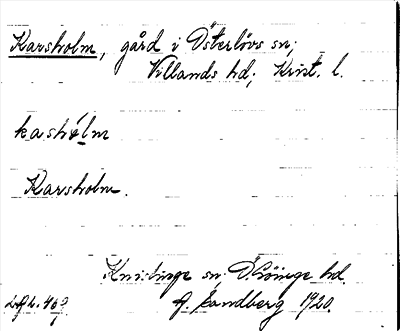 Karsholm, gård i Österlövs sn;
Villands hd; Krist. l.
kashólm
Karsholm.
Knislinge sn; Ö. Göinge hd.
g. Sandberg 1920.